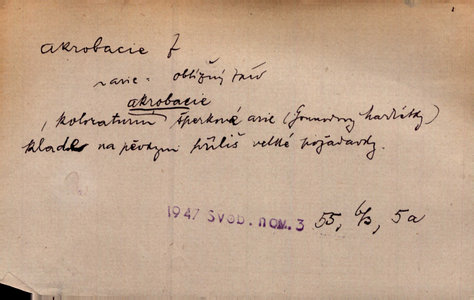 akrobacie f
akrobacie
koloraturní šperkové arie (Gounodovy
klade na pěvkyni příliš velké požadavky.
1947 Svob. nov. 3 55, 6/3, 5a